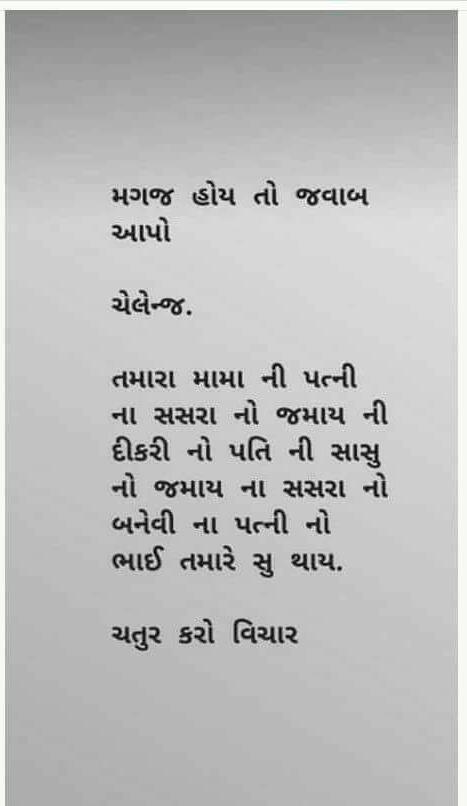 મગજ હોય તો જવાબ
આપો
ચેલેન્જ.
તમારા મામા ની પત્ની
ના સસરા નો જમાય ની
દીકરી નો પતિ ની સાસુ
નો જમાય ના સસરા નો
બનેવી ના પત્ની નો
ભાઈ તમારે સુ થાય.
ચતુર કરો વિચાર